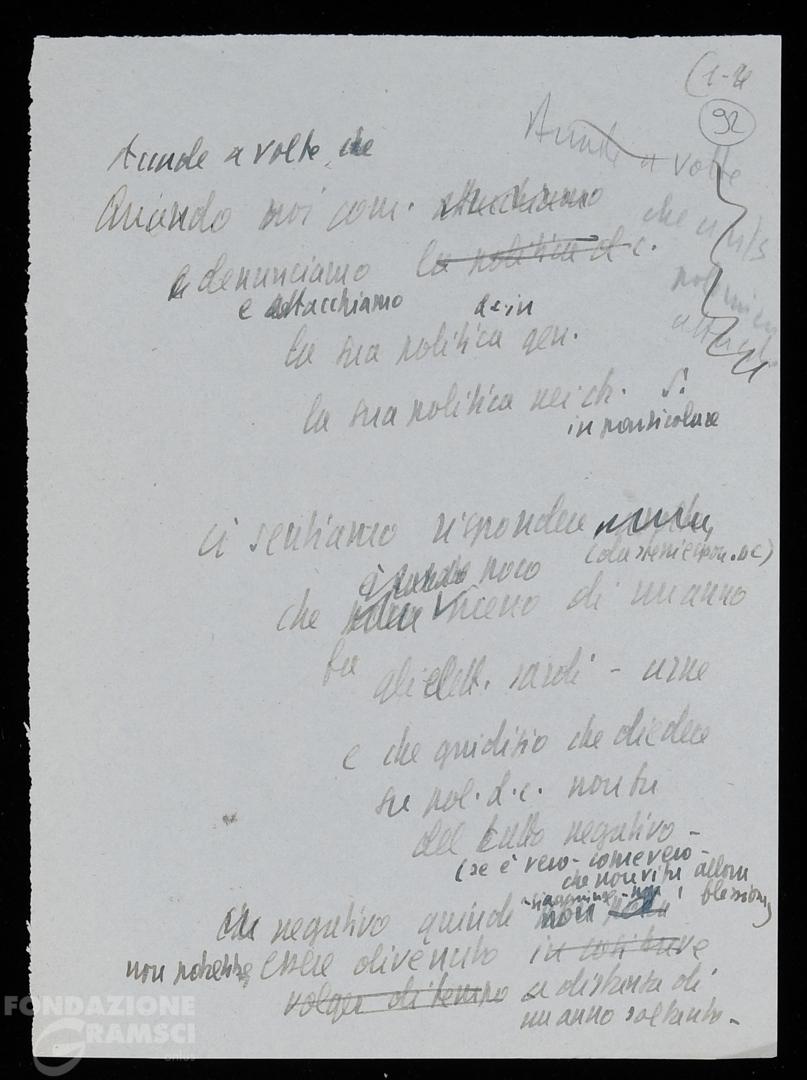 (1-2
92
Accade a volte
che
Accade a volte che
Quando noi com. attacchiamo
denunciamo la politica d.c.
e attacchiamo
la sua politica gen.
la sua politica nei ch. S.
in particolare
ci sentiamo rispondere
che è passato poco meno di un anno
fa gli elett. sardi - urne
e che giudizio che diedero
su pol. d.c. non fu
del tutto negativo -
(se è vero - come vero -
che non vi fu allora
flessione)
che negativo quindi non
non potrebbe essere divenuto in così breve
volger di tempo a distanza di
un anno soltanto -
FONDAZIONE
GRAMSCI
onlus